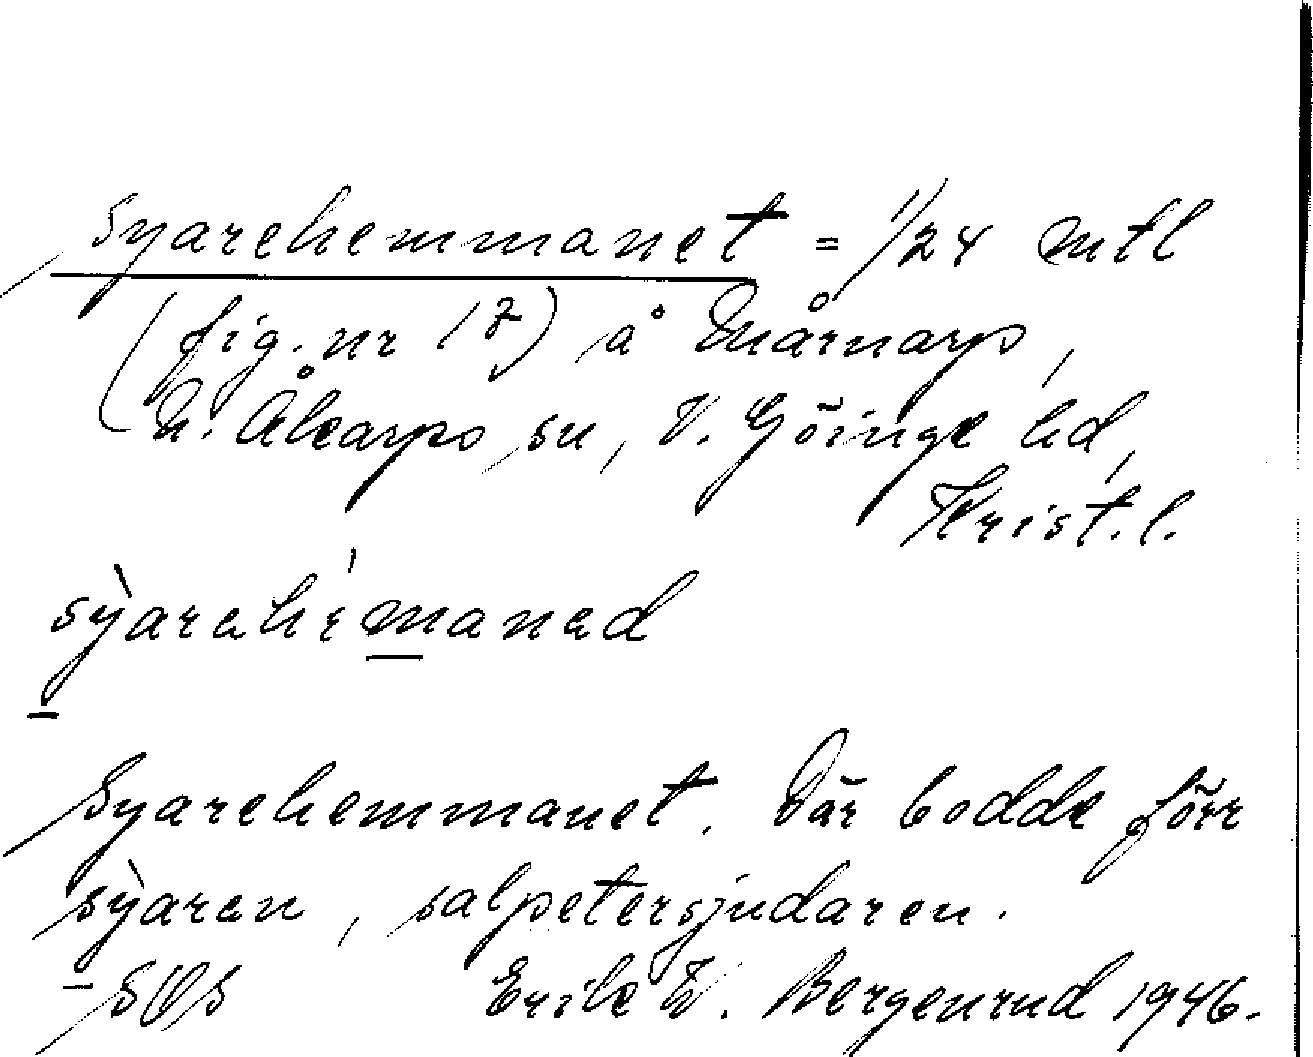 Syarehemmanet = 1/24 mtl
(fig. nr 17) å Mårnarp,
N. Åkarps sn, V. Göinge hd,
Krist. l.
sỳarahémanad
Syarehemmanet. Där bodde förr
sỳaran, salpetersjudaren.
Erik W. Bergenrud 1946.